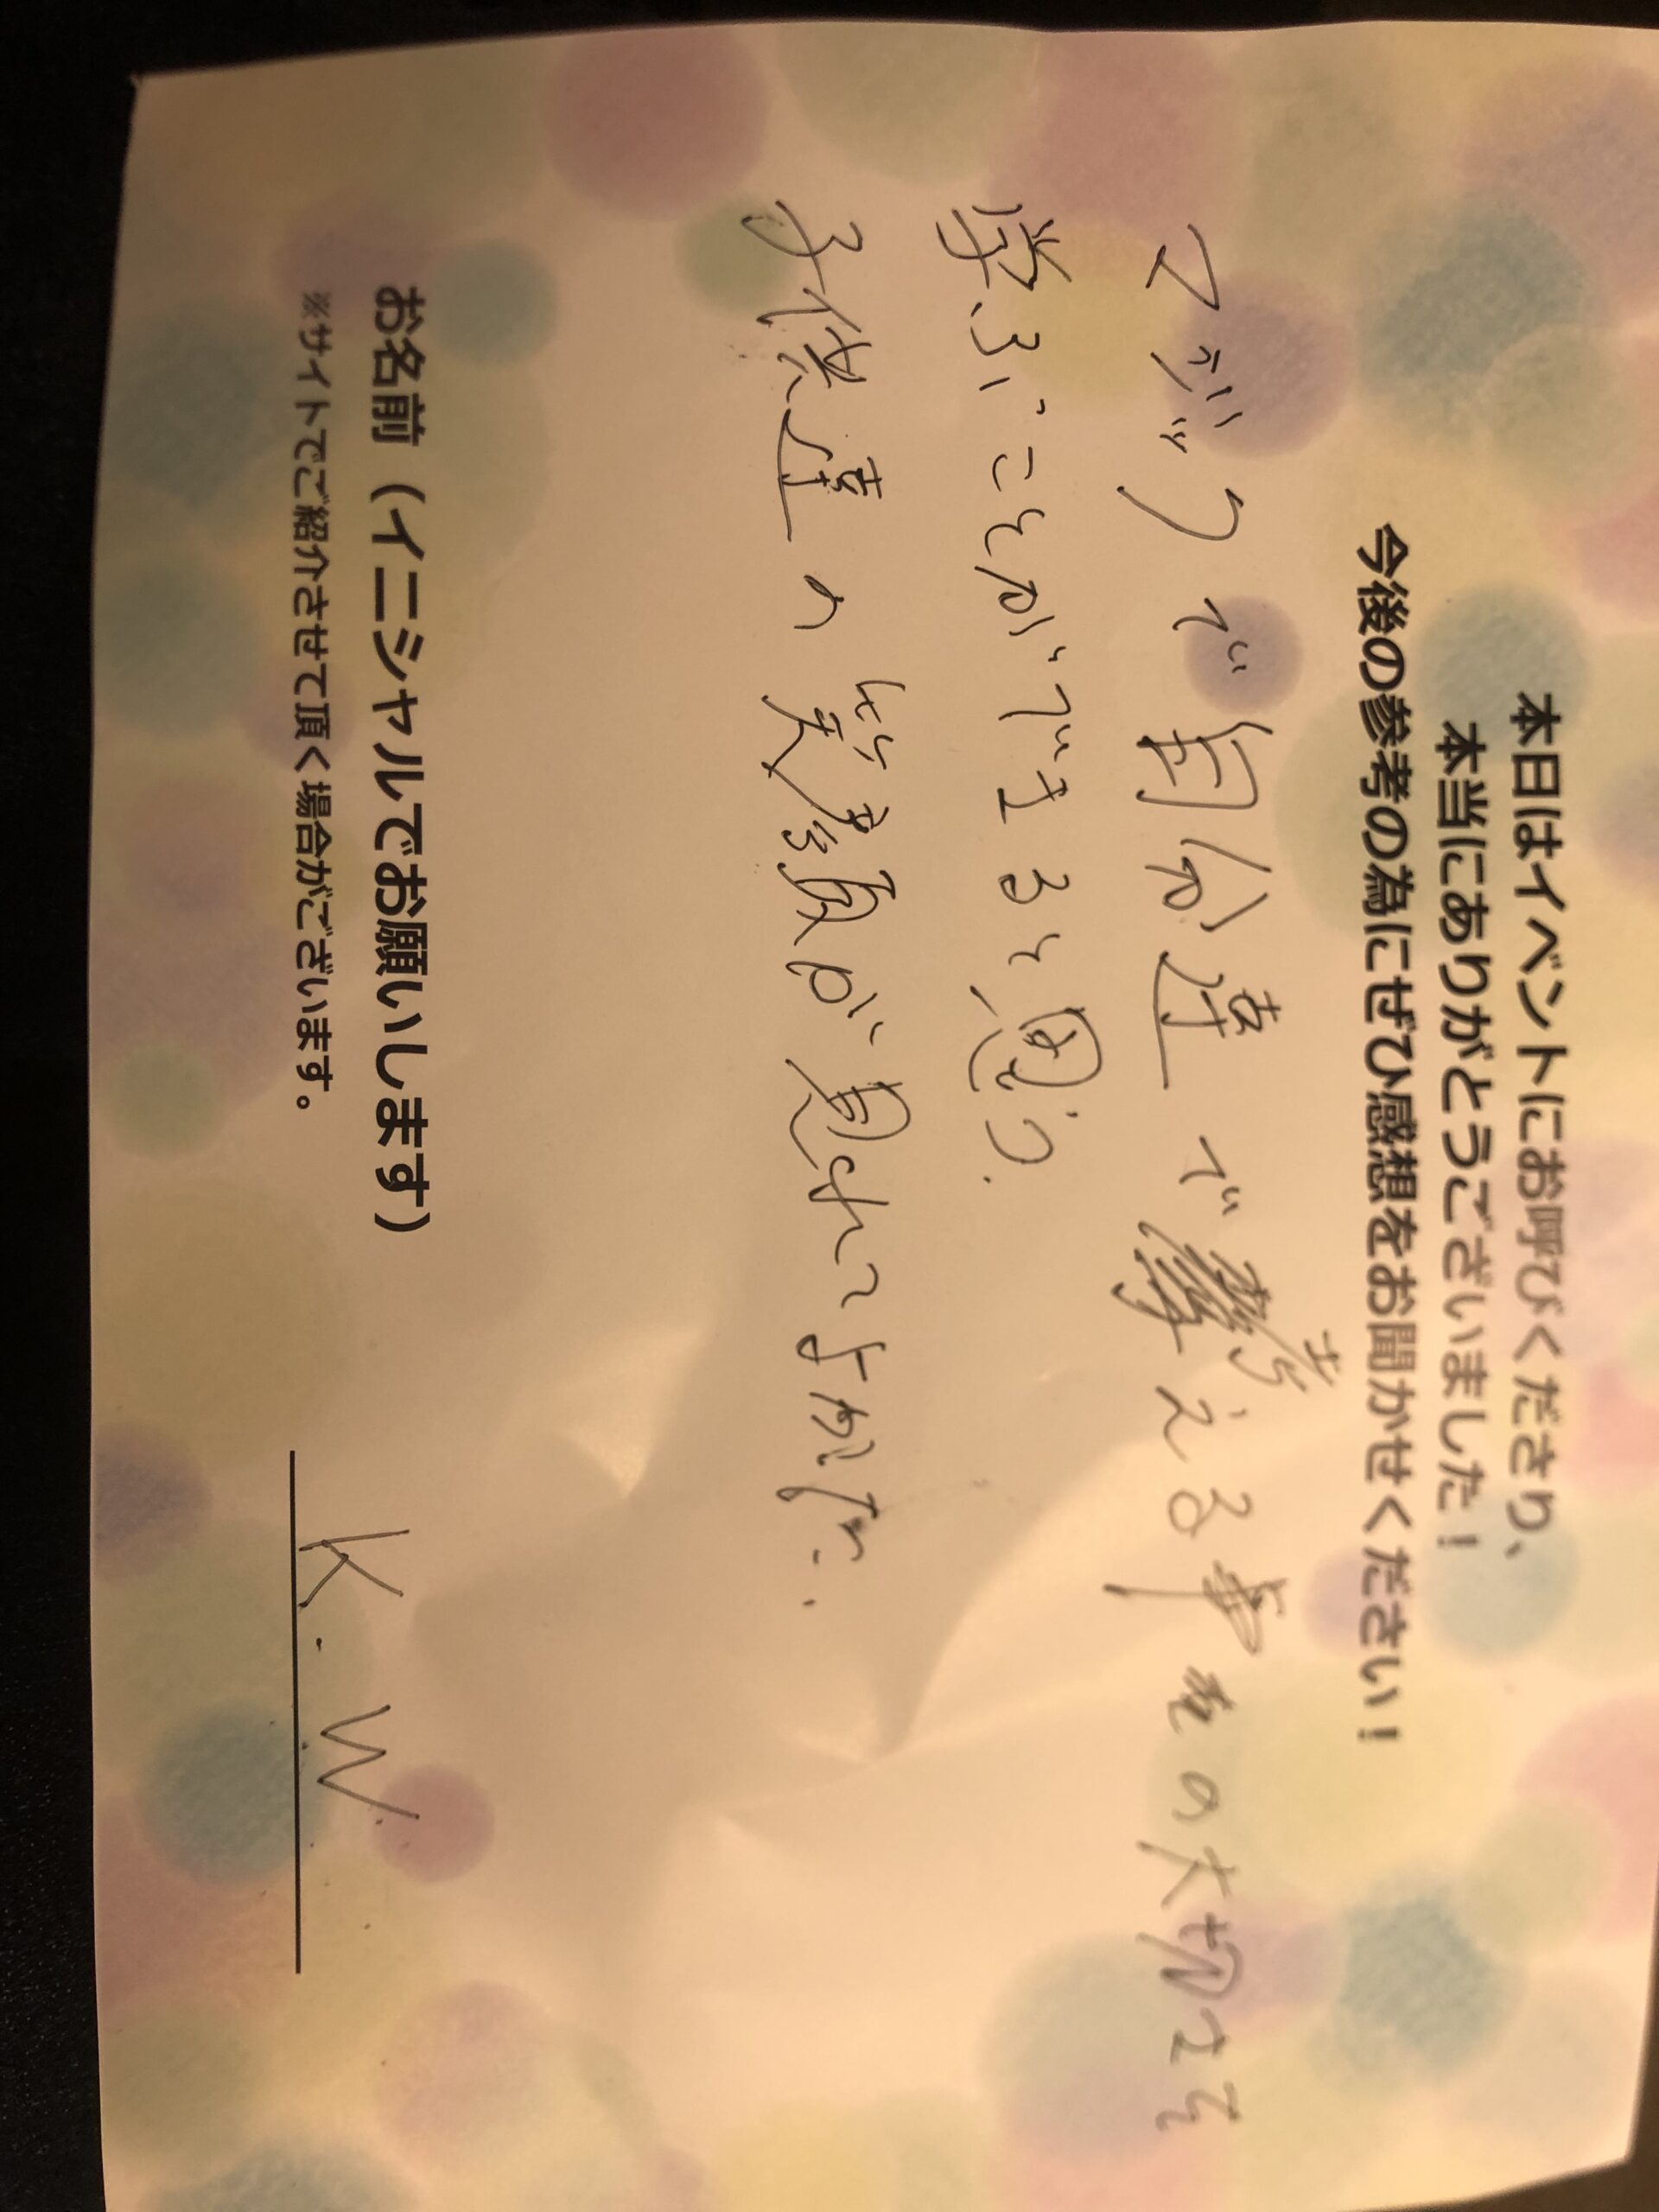 本日はイベントにお呼びくださり、
本当にありがとうございました！
今後の参考の為にぜひ感想をお聞かせください！
マジックで自分達で考える事の大切さを
学ぶことができると思う.
子供達の笑顔が見れてよかった.
お名前（イニシャルでお願いします）
※サイトでご紹介させて頂く場合がございます。
K.W.